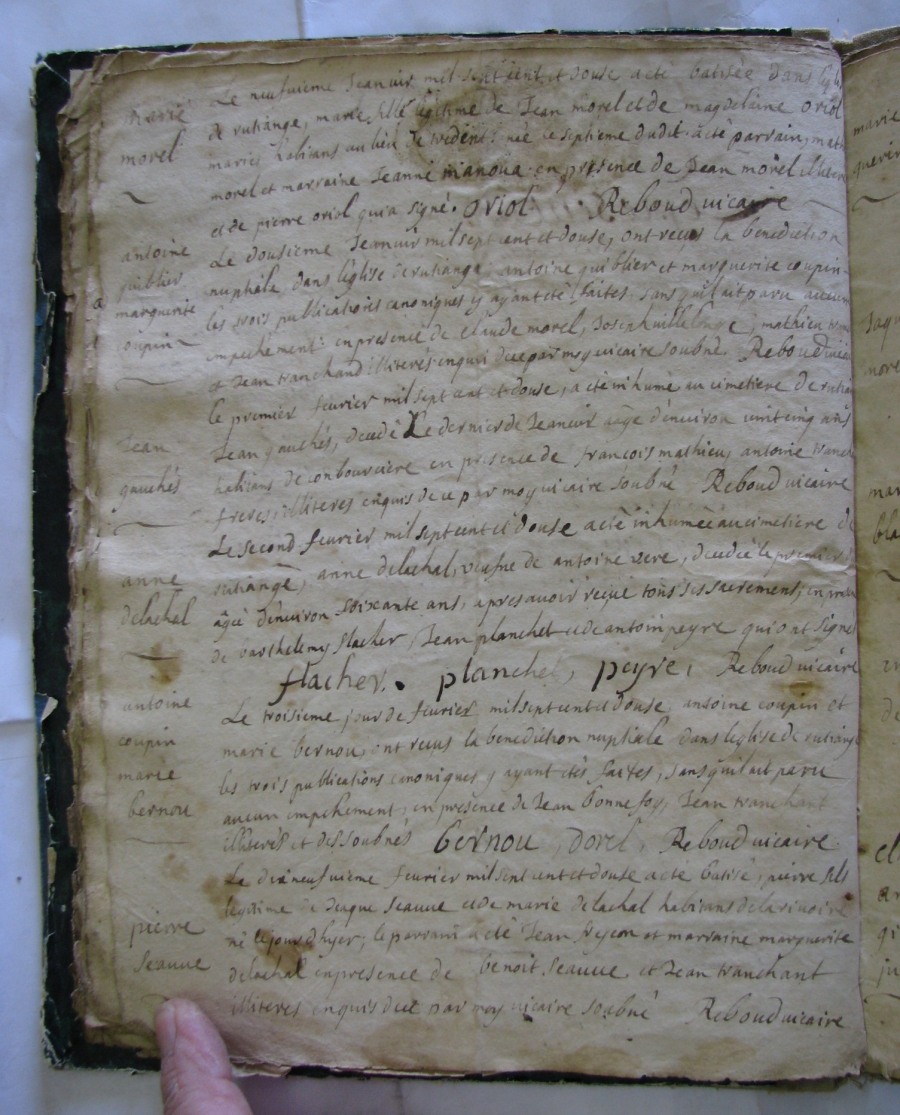 marie
morel
Le neufuieme Jeanuir mil sept cent et douse a eté batisée dans l'egli
de rutiange, marie fille legitime de Jean morel et de magdelaine oriol
mariés habitans au lieu de née le septieme dudit a eté parrain, mat
morel et marraine Jeanne manoua en presence de Jean morel illitere
et de pierre oriol qui a signé. oriol Reboud uicaire
antoine
quiblier
marguerite
coupin
Le dousieme Jeanuir mil sept cent et douse, ont receus la benediction
nuptiale dans leglise de rutiange antoine quiblier et marguerite coupin
les trois publications canoniques y ayant eté faites, sans qu'il ait paru aucun
empechement en presence de Claude morel, Joseph uillelonge, mathieu
et Jean tranchand illiterés enquis de ce par moy uicaire soubné Reboud uicai
Jean
gauchés
le premier feurier mil sept cent et douse, a eté inhumé au cimetiere de rutian
Jean gauchés, decedé Le dernier de Jeanuir aagé d'enuiron uint cinq ans
habitans de conbourciere en presence de francois mathieu, antoine tranch
freres illiteres enquis de ce par moy uicaire soubné Reboud uicaire
anne
delachal
Le second feurier mil sept cent et douse a eté inhumée au cimetiere de
rutiange, anne delachal, ueufue de antoine uere, decedée le premier
âgée d'enuiron soixante ans, apres auoir reçue tous ses sacrements, en presen
de barthelemy flacher, Jean planchet et de antoin peyre qui ont signé
flacher. planchet, peyre, Reboud uicaire
antoine
coupin
marie
bernou
Le troisieme jour de feurier mil sept cent et douse antoine coupin et
marie bernou, ont receus la benediction nuptiale dans leglise de rutiange
les trois publications canoniques y ayant etés faites, sans qu'il ait paru
aucun empechement, en presence de Jean bonnefoy, Jean tranchant
illiterés et des soubnés bernou, dorel, Reboud uicaire
pierre
seauue
Le dixneufuieme feurier mil sept cent et douse a eté batisé, pierre fils
legitime de Jaque seauue et de marie delachal habitans de la riuoire
né le jour d'hyer, le parrain a eté Jean feycon et marraine marguerite
delachal en presence de benoit seauue et Jean tranchant
illiteres enquis de ce par moy uicaire soubné Reboud uicaire